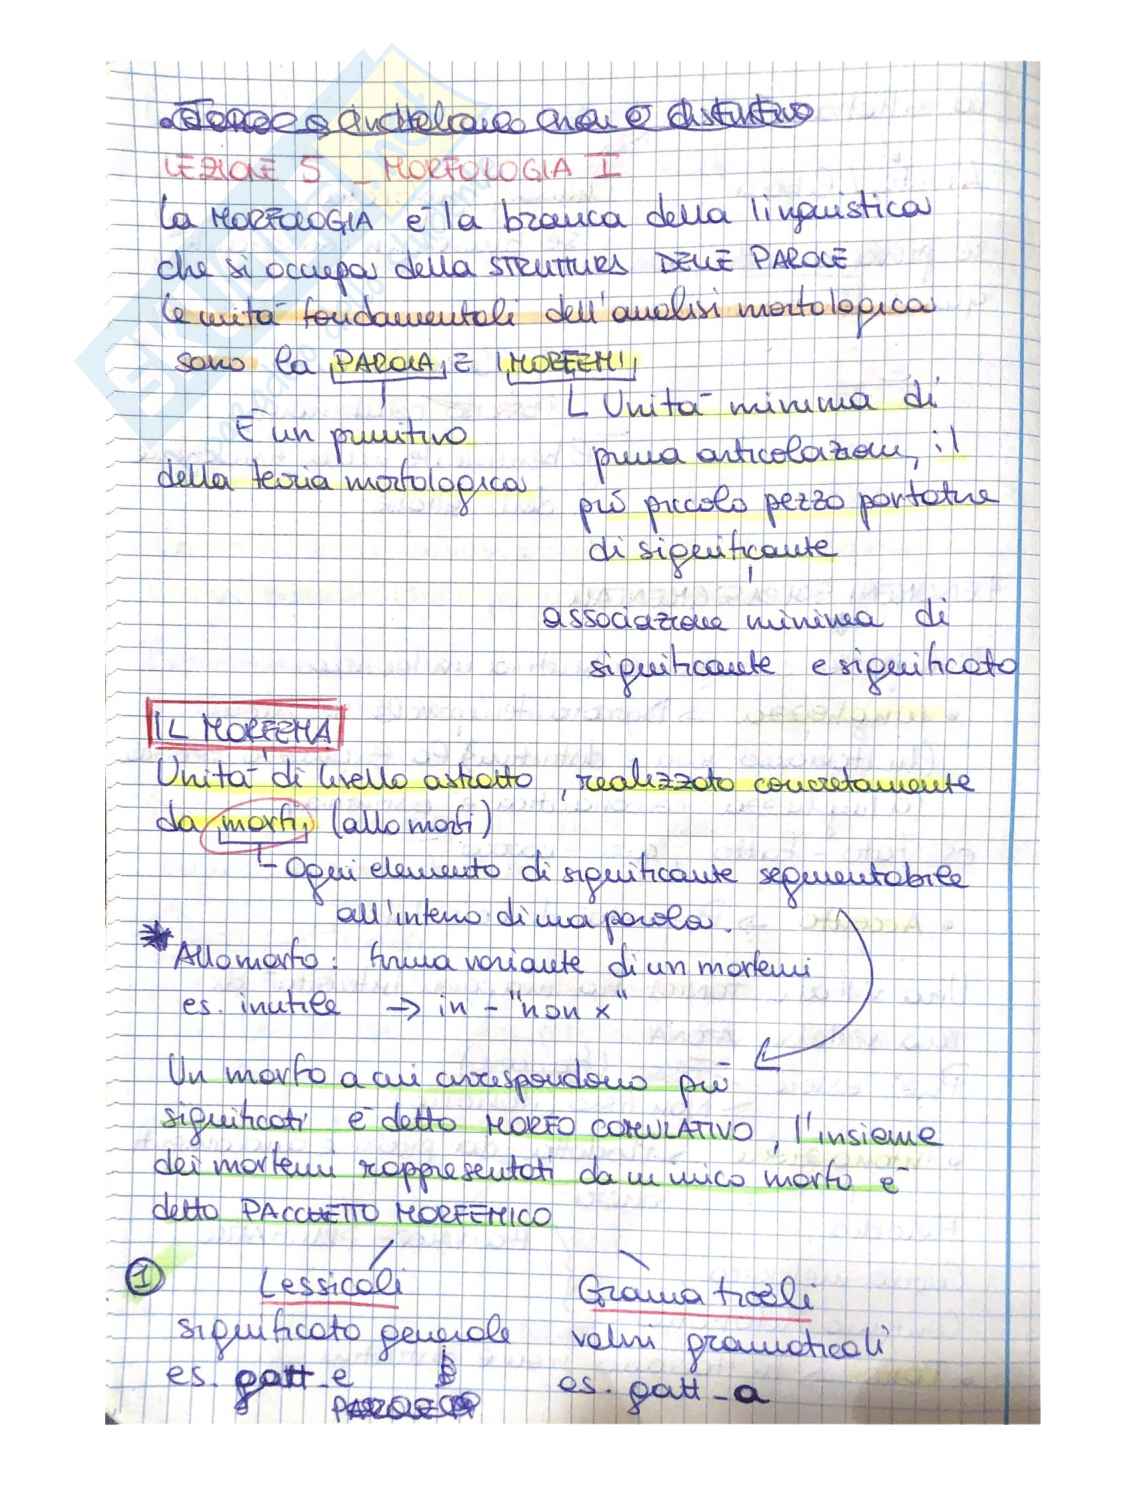 LEZIONE 5 _ MORFOLOGIA I
La MORFOLOGIA è la branca della linguistica
che si occupa della STRUTTURA DELLE PAROLE
Le unità fondamentali dell'analisi morfologica
sono la PAROLA E I MORFEMI
È un primitivo
della teoria morfologica
Unità minima di
prima articolazione, il
più piccolo pezzo portatore
di significante
associazione minima di
significante e significato
IL MORFEMA
Unità di livello astratto, realizzato concretamente
da morfi (allomorfi)
- Ogni elemento di significante segmentabile
all'interno di una parola.
* Allomorfo: forma variante di un morfemi
es. inutile → in - "non x"
Un morfo a cui corrispondono più
significati è detto MORFO CUMULATIVO, l'insieme
dei morfemi rappresentati da un unico morfo è
detto PACCHETTO MORFEMICO
1 Lessicali Grammaticali
significato generale valori grammaticali
es. gatt-e es. gatt-a